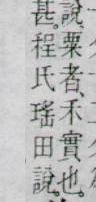 說粟者、禾實也。
甚。程氏瑤田說。